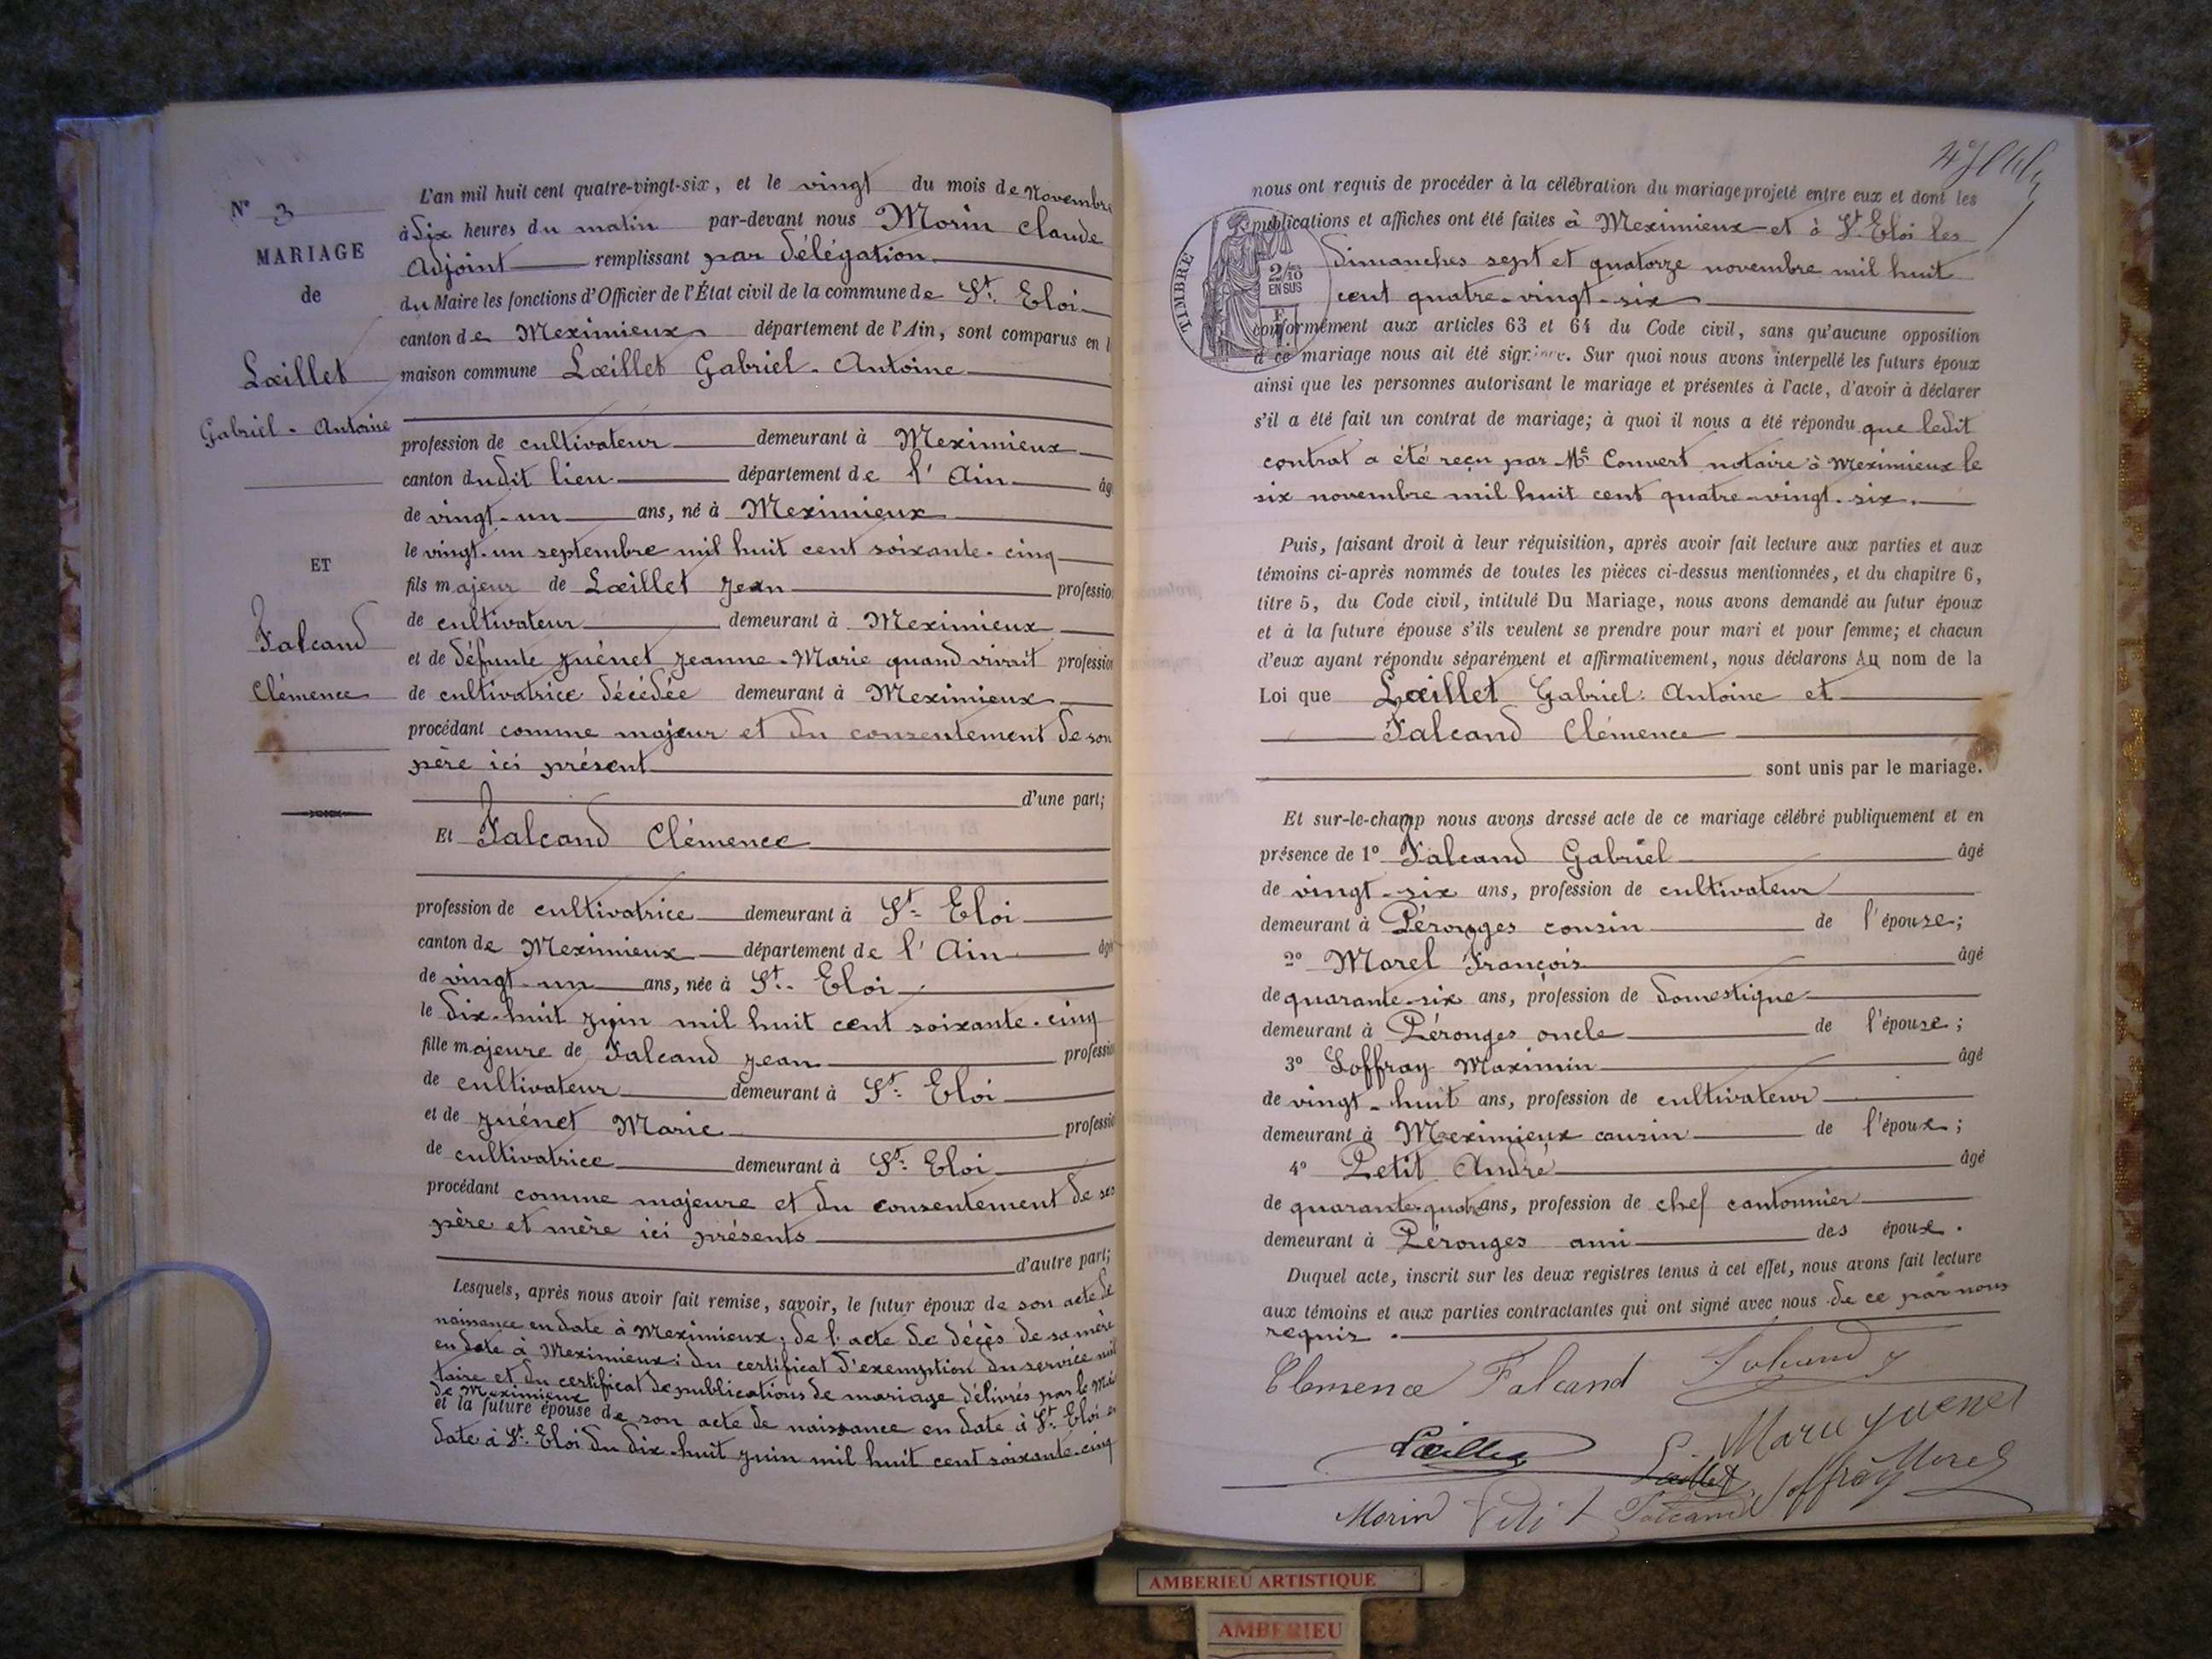 N° 3
MARIAGE
de
Lœillet
Gabriel - Antoine
ET
Falcand
Clémence
L'an mil huit cent quatre-vingt-six, et le vingt du mois de Novembre
à dix heures du matin par-devant nous Morin Claude
Adjoint remplissant par délégation
du Maire les fonctions d'Officier de l'État civil de la commune de St. Eloi
canton de Meximieux département de l'Ain, sont comparus en l
maison commune Lœillet Gabriel - Antoine
profession de cultivateur demeurant à Meximieux
canton dudit lieu département de l'Ain âg
de vingt-un ans, né à Meximieux
le vingt-un septembre mil huit cent soixante-cinq
fils majeur de Lœillet Jean professio
de cultivateur demeurant à Meximieux
et de défunte Juénet Jeanne-Marie quand vivait profession
de cultivatrice décédée demeurant à Meximieux
procédant comme majeur et du consentement de son
père ici présent
d'une part;
Et Falcand Clémence
profession de cultivatrice demeurant à St. Eloi
canton de Meximieux département de l'Ain âgé
de vingt-un ans, née à St. Eloi
le dix-huit juin mil huit cent soixante-cinq
fille majeure de Falcand Jean professi
de cultivateur demeurant à St. Eloi
et de Juénet Marie professio
de cultivatrice demeurant à St. Eloi
procédant comme majeure et du consentement de ses
père et mère ici présents
d'autre part;
Lesquels, après nous avoir fait remise, savoir, le futur époux de son acte de
naissance en date à Meximieux; de l'acte de décès de sa mère
en date à Meximieux; du certificat d'exemption du service mili
taire et du certificat de publications de mariage délivrés par le Mai
de Meximieux
et la future épouse de son acte de naissance en date à St. Eloi en
date à St. Eloi du dix-huit juin mil huit cent soixante-cinq
nous ont requis de procéder à la célébration du mariage projeté entre eux et dont les
publications et affiches ont été faites à Meximieux et à St. Eloi les
dimanches sept et quatorze novembre mil huit
cent quatre-vingt-six
TIMBRE
2/10
EN SUS
conformément aux articles 63 et 64 du Code civil, sans qu'aucune opposition
à ce mariage nous ait été signifiée. Sur quoi nous avons interpellé les futurs époux
ainsi que les personnes autorisant le mariage et présentes à l'acte, d'avoir à déclarer
s'il a été fait un contrat de mariage; à quoi il nous a été répondu que ledit
contrat a été reçu par Me Convert notaire à Meximieux le
six novembre mil huit cent quatre-vingt-six.
Puis, faisant droit à leur réquisition, après avoir fait lecture aux parties et aux
témoins ci-après nommés de toutes les pièces ci-dessus mentionnées, et du chapitre 6,
titre 5, du Code civil, intitulé Du Mariage, nous avons demandé au futur époux
et à la future épouse s'ils veulent se prendre pour mari et pour femme; et chacun
d'eux ayant répondu séparément et affirmativement, nous déclarons Au nom de la
Loi que Lœillet Gabriel-Antoine et
Falcand Clémence
sont unis par le mariage.
Et sur-le-champ nous avons dressé acte de ce mariage célébré publiquement et en
présence de 1° Falcand Gabriel âgé
de vingt-six ans, profession de cultivateur
demeurant à Pérouges cousin de l'épouse;
2° Morel François âgé
de quarante-six ans, profession de domestique
demeurant à Pérouges oncle de l'épouse;
3° Soffray Maximin âgé
de vingt-huit ans, profession de cultivateur
demeurant à Meximieux cousin de l'époux;
4° Petit André âgé
de quarante-quatre ans, profession de chef cantonnier
demeurant à Pérouges ami des époux.
Duquel acte, inscrit sur les deux registres tenus à cet effet, nous avons fait lecture
aux témoins et aux parties contractantes qui ont signé avec nous de ce par nous
requis.
Clemence Falcand Falcand J
Marie Juenet
Lœillet Lœillet Soffray Morel
Morin Petit Falcand
AMBERIEU ARTISTIQUE
AMBERIEU